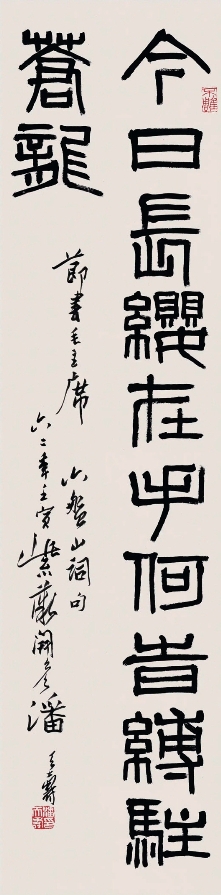 不雕
今日長纓在手何旹縛駐
蒼龍
節書毛主席六盤山詞句
六二年壬寅紫薇開潘天壽